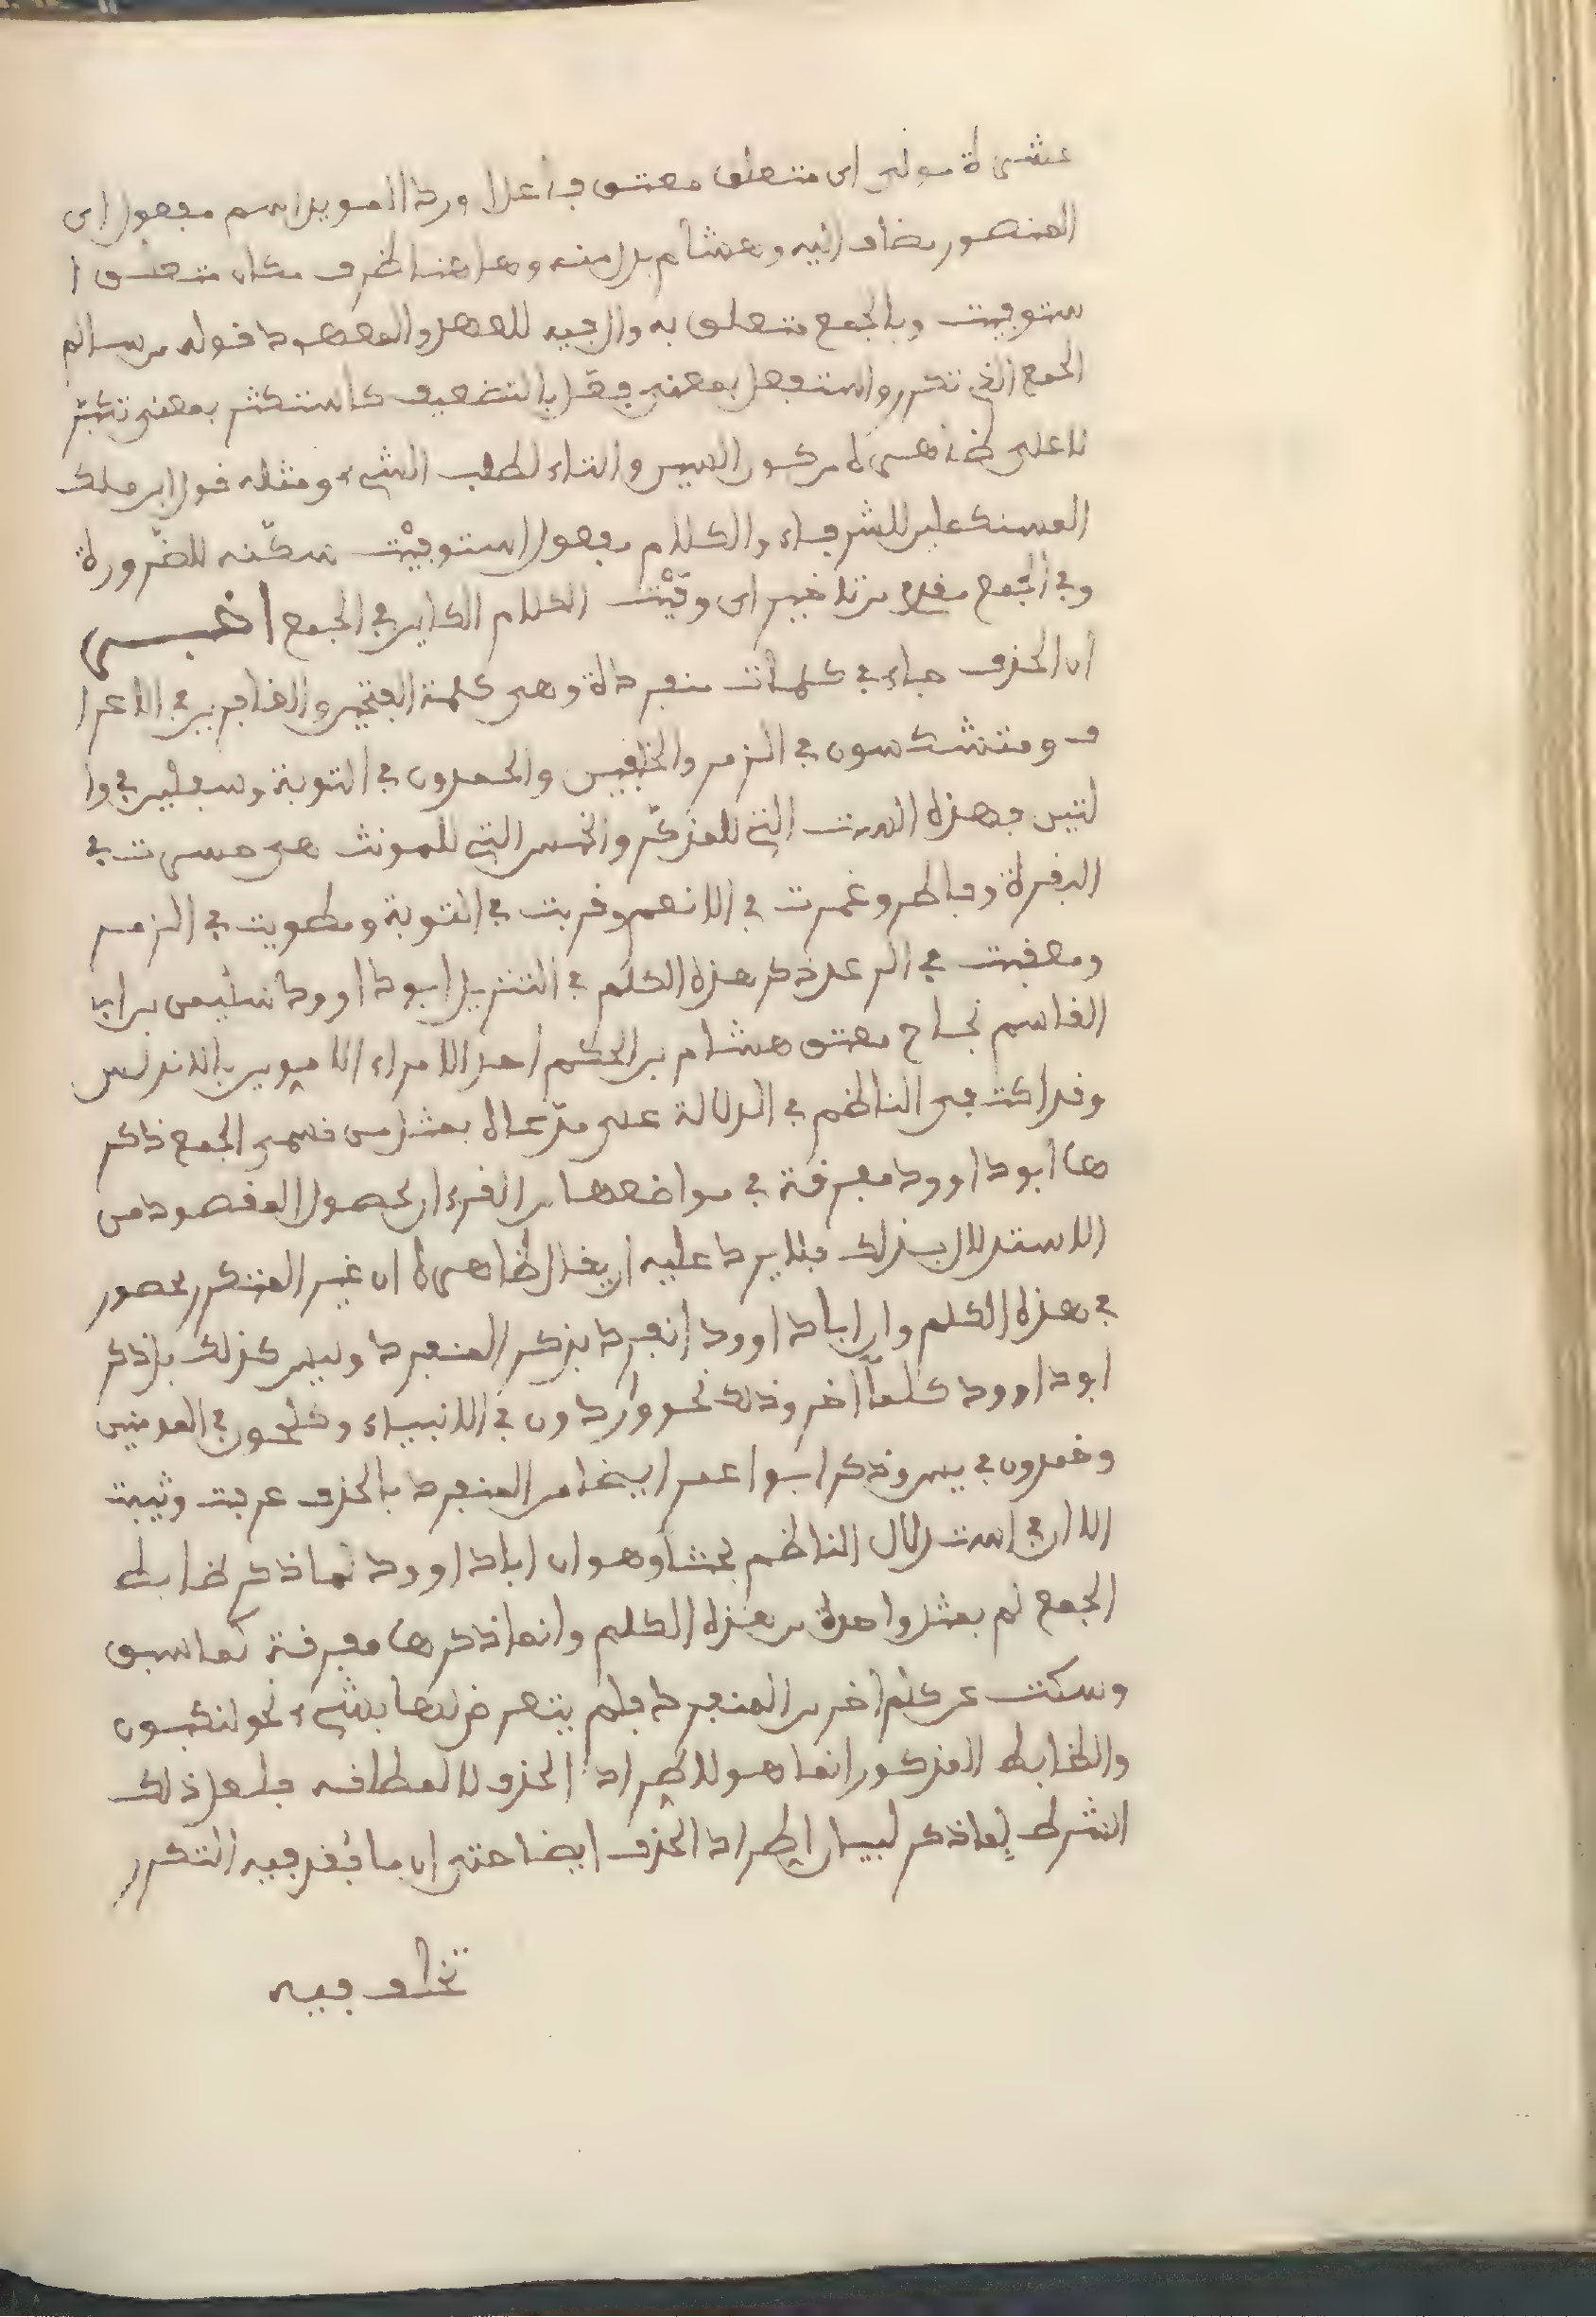 عشرة مولى اى متعلق معتق فاعل اورد المويد اسم مفعول اى
المنصور مضاف اليه وهشام بدل منه وهاهنا ظرف مكان متعلق ا
ستوفيت وبالجمع متعلق به وال فيه للعهد والمعهود قوله من سالم
الجمع الذى تكرر واستفعل بمعنى فعل بالتضعيف كاستكثر بمعنى تكثر
لا على ظاهره من كون السين والتاء لطلب الشىء ومثله قول ابن ملك
المستكملين للشرفاء والكلام مفعول استوفيت سكنه للضرورة
وفى الجمع مقدم من تاخير اى وفيت الكلام الكاين فى الجمع اخبـــر
ان الحذف جاء فى كلمات منفردة وهى كلمة الفتحين والغافرين فى الاعرا
ف ومتشكسون فى الزمر والخلفين والحمدون فى التوبة وسفلين فى وا
لتين فهذه الست التى للمذكر والخمس التى للمونث هى حسرت فى
البقرة وفاطر وغمرت فى الانعم وقربت فى التوبة ومطويت فى الزمر
ومعقبت فى الرعد ذكر هذه الكلم فى التنزيل ابوداوود سليمن بن ابى
القاسم نجاح معتق هشام بن الحكم احد الامراء الامويين بالاندلس
وقد اكتفى الناظم فى الدلالة على مدعاه بمثل من قسمى الجمع ذكر
ها ابوداوود مفرقة فى مواضعها من القرءان لحصول المقصود من
الاستدلال بذلك فلا يرد عليه ان يقال ظاهره ان غير المتكرر محصور
فى هذه الكلم وان اباداوود انفرد بذكر المنفرد وليس كذلك بل ذكر
ابوداوود كلما اخر وذلك نحو وردون فى الانبياء وكلحون فى المومنين
وخمدون فى يس وذكر ابوا عمر ايضا من المنفرد بالحذف عرفت وثيبت
الا ان فى استدلال الناظم بحثا وهو ان اباداوود لما ذكر ضابط
الجمع لم يمثل بواحدة من هذه الكلم وانما ذكرها مفرقة كما سبق
وسكت عن كلم اخر من المنفرد فلم يتعرض لها بشىء نحو لنكبون
والضابط المذكور انما هو لاطراد الحذف لا لمطلقه فلعل ذلك
الشرط انما ذكر لبيان اطراد الحذف ايضا حتى ان ما فقد فيه التكرر
تخلف فيه